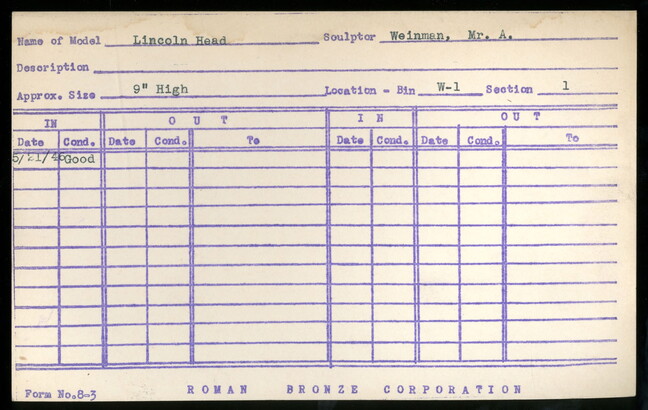 Name of Model Lincoln Head Sculptor Weinman, Mr. A.
Description
Approx. Size 9" High Location - Bin W-1 Section 1
IN OUT IN OUT
Date Cond. Date Cond. To Date Cond. Date Cond. To
5/21/46 Good
Form No. 8-3 ROMAN BRONZE CORPORATION